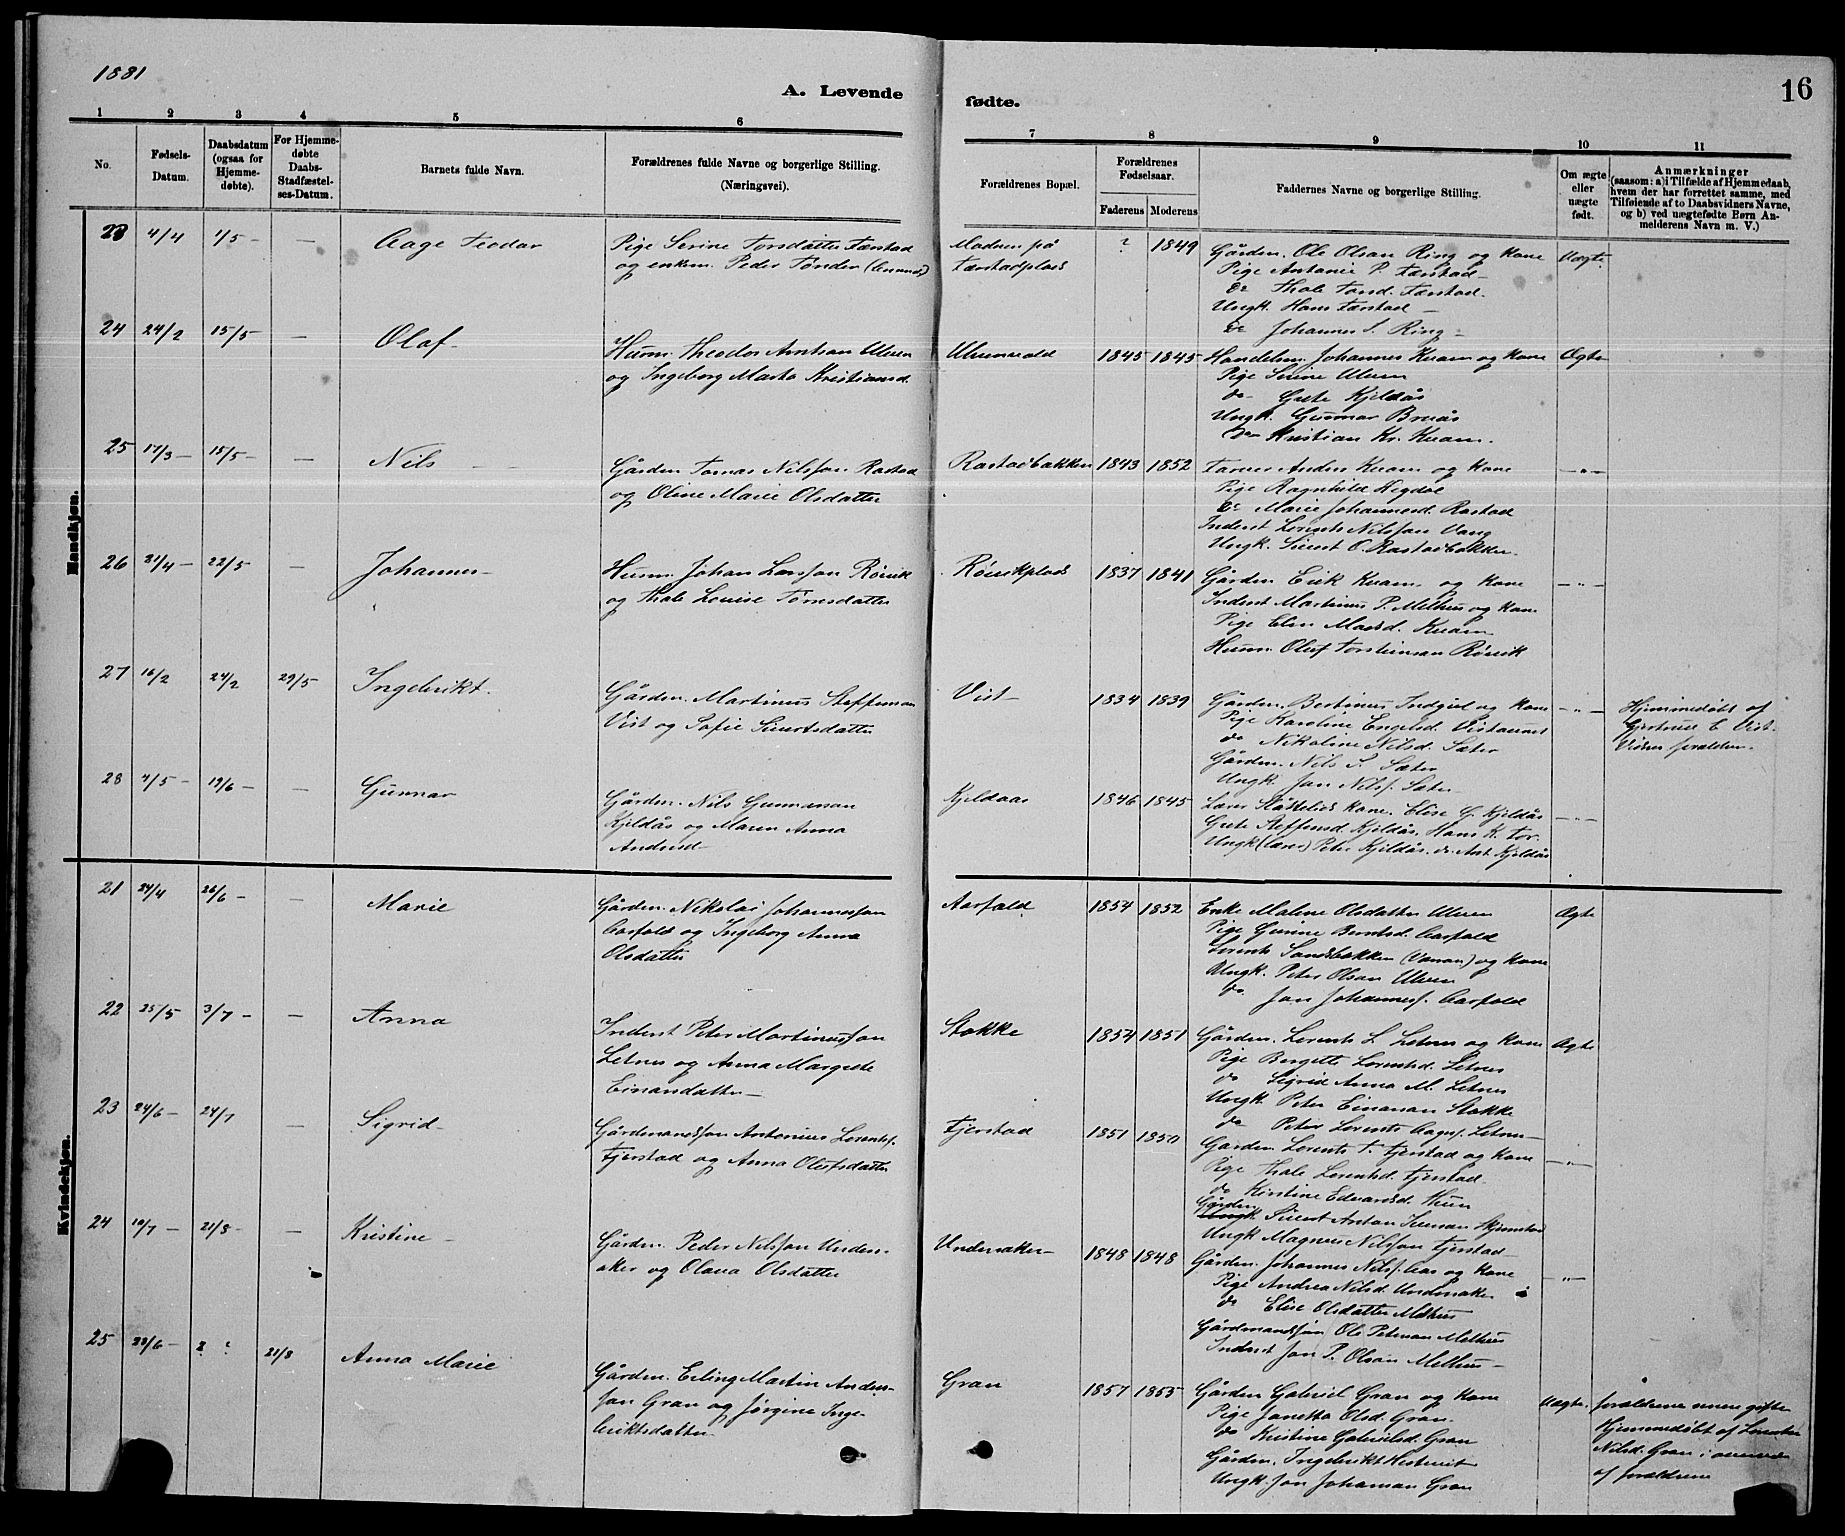 1881
A. Levende
fødte.
16
1 2 3 4 5 6 7 8 9 10 11
No.
Fødsels-
Datum.
Daabsdatum
(ogsaa for
Hjemme-
døbte).
For Hjemme-
døbte
Daabs-
Stadfæstel-
ses-Datum.
Barnets fulde Navn.
Forældrenes fulde Navne og borgerlige Stilling.
(Næringsvei).
Forældrenes Bopæl.
Forældrenes
Fødselsaar.
Faderens Moderens
Faddernes Navne og borgerlige Stilling.
Om ægte
eller
uægte
født.
Anmærkninger
(saasom: a) i Tilfælde af Hjemmedaab,
hvem der har forrettet samme, med
Tilføiende af to Daabsvidners Navne,
og b) ved uægtefødte Børn An-
melderens Navn m. V.)
Mandkjøn.
23 4/4 1/5 - — Aage Teodor
Pige Serine Torsdatter Færstad
og enkem. Peder Tønder
Moderen på
Færstadplads
? 1849
Gården. Ole Olsen Ring og kone
Pige Antonie P. Færstad -
do Thale Torsd. Færstad.
Ungk. Hans Færstad -
do Johannes S. Ring -
Uægte.
24 24/2 15/5 — Olaf -
Husm. Theodor Arntsen Ulven
og Ingeborg Marta Kristiansd.
Ulvenvald
1845 1845
Handelsm. Johannes Kvam og kone
Pige Serine Ulven
do - Grete Kjeldås
Ungk. Gunnar Bruås
do Kristian Kr. Kvam.
Ægte
25 17/3 - 15/5 - — Nils
Gården Tomas Nilssøn Rastad
og Oline Marie Olsdatter
Rastadbakken 1843 1852
Farver Anders Kvam og kone
Pige Ragnhild Hegdal
do Marie Johannesd. Rastad
Inderst Lorents Nilssøn Vang
Ungk. Sivert O. Rastadbakken.
— " —
26 21/4 - 22/5 - — Johannes -
Husm. Johan Larssøn Røisik
og Thale Lovise Tørresdatter
Røisikplads 1837 1841
Gården Erik Kvam, og kone
Inderst Martinus P. Melhus og kone
Pige Elen Madsd. Kvam
Husm. Oluf Torsteinsen Røisik
— " —
27 16/2 24/2 29/5 Ingebrikt.
Gården. Martinus Steffensen
Vist og Sofie Sivertsdatter
Vist -
1834 1839
Gården. Bertinus Indgjed og kone
Pige Karoline Engelsd. Vistaunet
do Nikoline Nilsd. Sæter
Gården. Nils S. Sæter
Ungk. Jon Nilss. Sæter
— " —
Hjemmedøbt af
Gjertrud E Vist.
Vidner forældrene.
28 4/5 - 19/6 - — Gunnar
Gården. Nils Gunnarsen
Kjeldås og Maren Anna
Andersd -
Kjeldaas 1846 1845
Lærer Slåttelids kone. Elise G. Kjeldås
Grete Steffensd. Kjeldås. Hans K. Tor.
Ungk (lærer) Peter Kjeldås. do Arnt Kjeldås
— " —
Kvindekjøn.
21 24/4 26/6 - — Marie
Gården. Nikolai Johannessøn
Aasfald og Ingeborg Anna
Olsdatter
Aarfald. 1854 1852
Enke Maline Olsdatter Ulven
Pige Gurine Berntsd. Aarfald
Lorents Sandsbakken (Vanan) og kone
Ungk. Peter Olsen Ulven
do. Jon Johanness. Aarfald
Ægte
22 25/5 3/7 - — Anna
Inderst Peter Martinussøn
Letnes og Anna Margrete
Einarsdatter -
Stokke 1854 1851
Gården. Lorents L Letnes og kone
Pige Bergitte Lorentsd. Letnes
do Sigrid Anna M. Letnes
Ungk. Peter Einarsen Stokke
do Peter Lorents Aages. Letnes -
Ægte
23 24/6 - 24/7 — Sigrid -
Gårdmandssøn Antonius Lorents.
Fjerstad og Anna Olufsdatter
Fjerstad 1851 1850
Gården Lorents T. Fjerstad og kone
Pige Thale Lorentsd. Fjerstad
do Kirstine Edvardsd. Huun
Gården
Ungk. Sivert Anton Iversen Skjerstad
Ungk Magnus Nilssøn Fjerstad -
— " —
24 10/7 - 21/8 - — Kristine -
Gården. Peder Nilssøn Unders-
aker og Olava Olsdatter
Undersaker - 1848 1848
Gården. Johannes Nilss. Aas og kone
Pige Andrea Nilsd. Undersaker
do Elise Olsdatter Melhus
Gårdmandssøn Ole Petersen Melhus
Inderst Jon P. Olsen Melhus -
— " —
25 28/6 - ? ? 21/8 Anna Marie
Gården. Erling Martin Anders-
søn Gran og Jørgine Inge-
briktsdatter
Gran 1857 1855
Gården Gabriel Gran og kone
Pige Janetta Olsd. Gran.
do Kristine Gabrielsd. Gran
Gården. Ingebrikt
Ungk. Jon Johansen Gran
Uægte.
forældrene senere gifte
Hjemmedøbt af
Nilsd. Gran i overvær
af forældrene